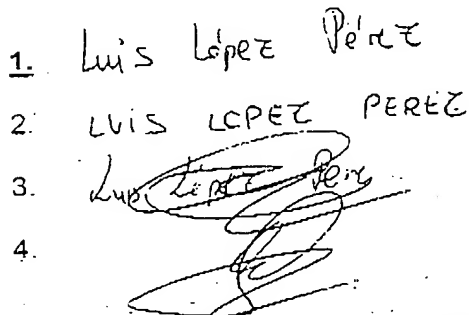 1. Luis López Pérez
2. LUIS LOPEZ PEREZ
3. Luis López Pérez
4.